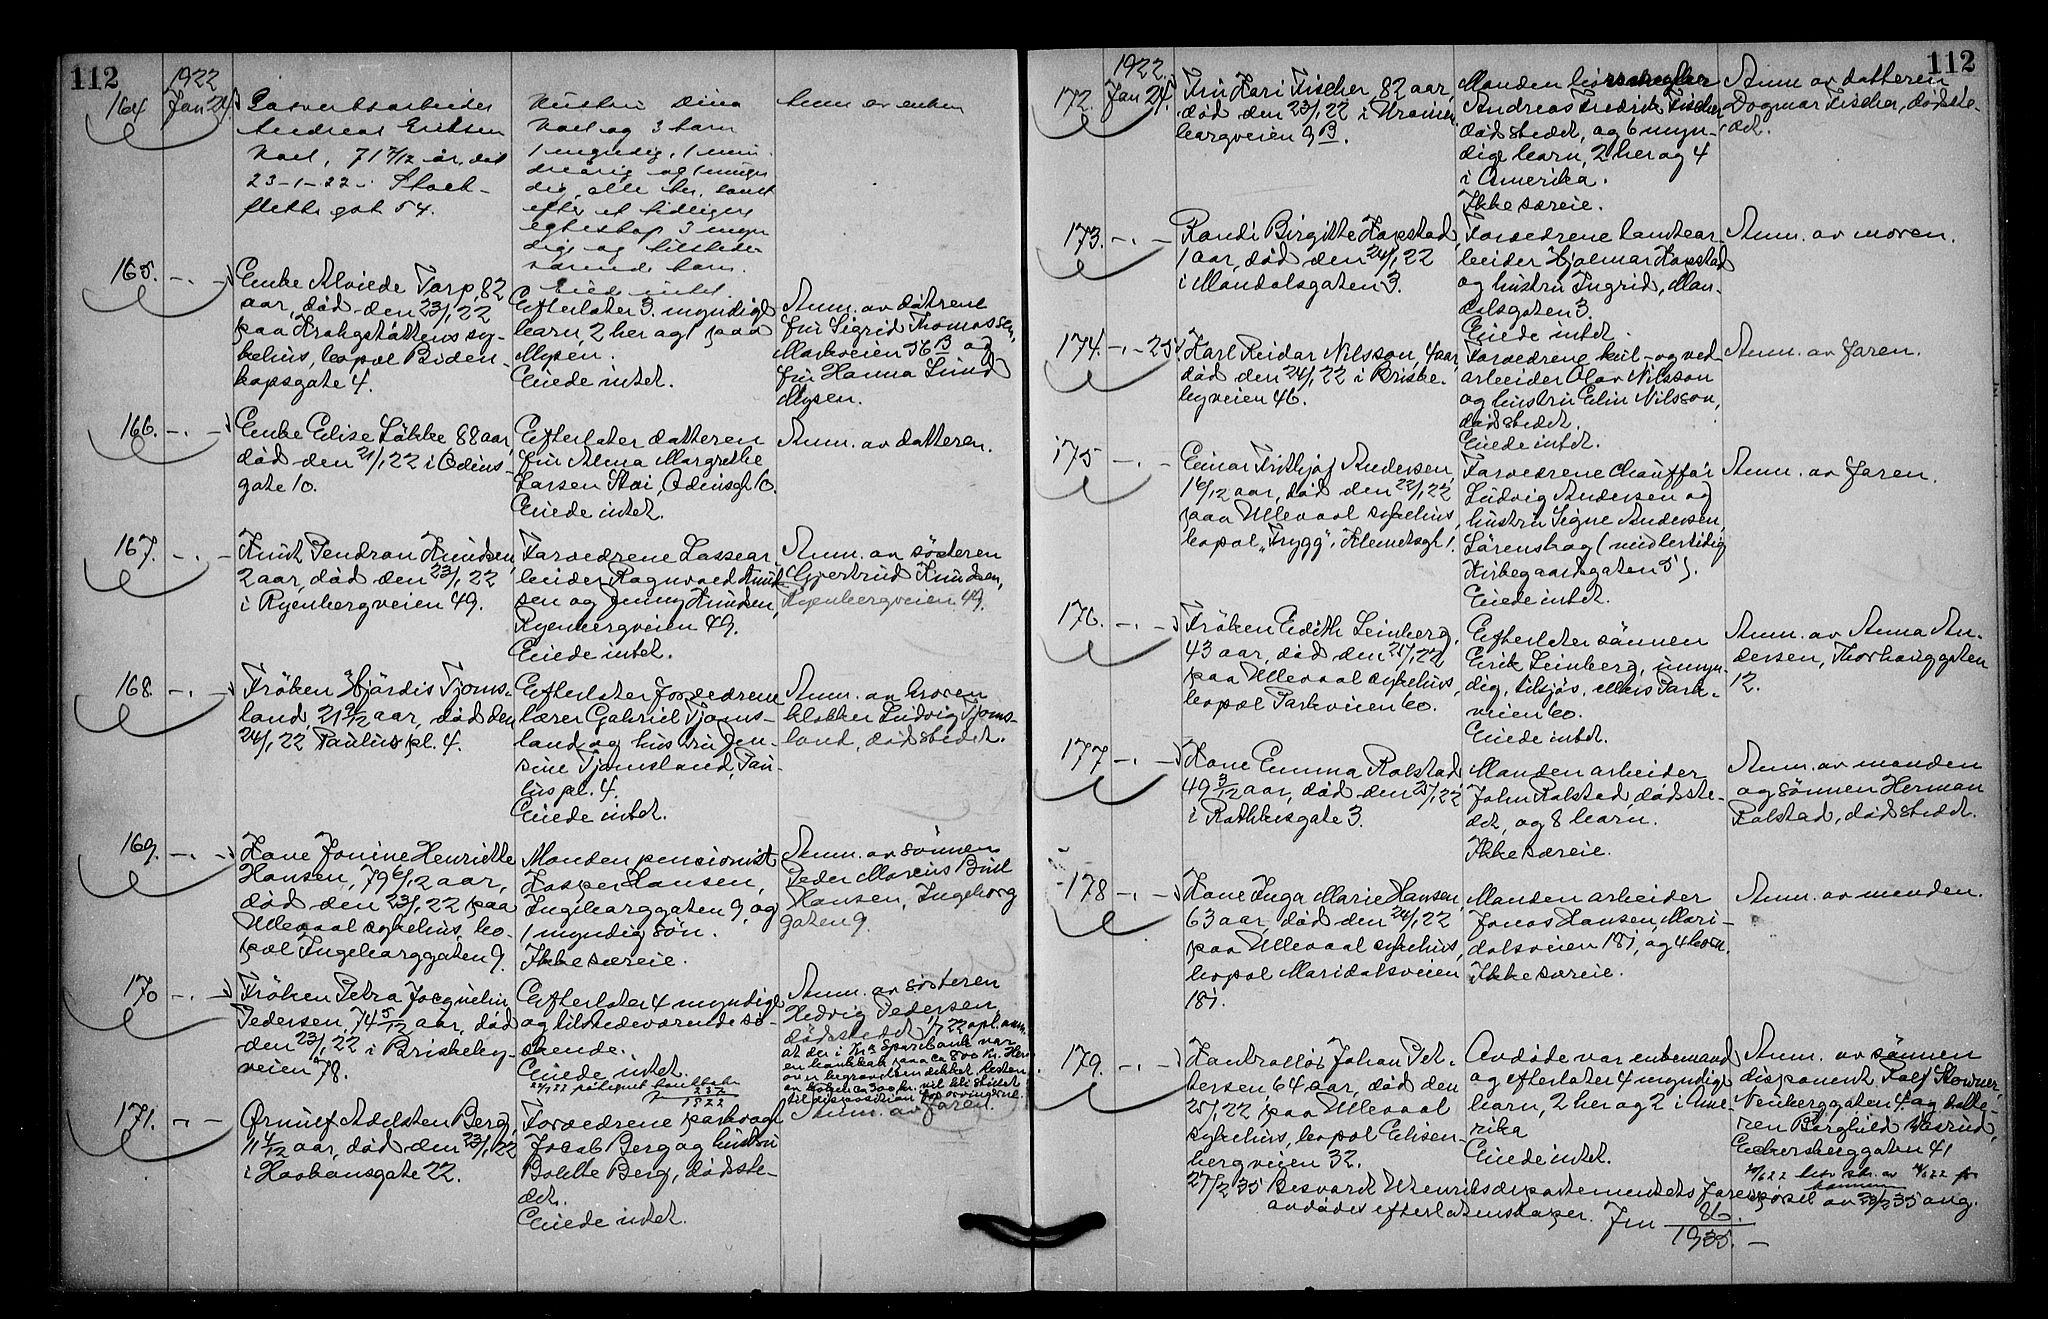 112
1922
164
Jan 24
Gasverksarbeider
Andreas Eriksen
71 7/12 år, død
23-1-22 i Stock-
fletht gat 54.
Hustru Dina
og 3 barn
1 myndig, 1 min-
dreårig og 1 umyn-
dig, alle her, samt
efter et tidligere
egteskap 3 myn-
dige og tilstede-
værende barn.
Eied intet.
Anm. av enken
165.
Enke Alviede Torp, 82
aar, død den 23/1 22
paa Krohgstøttens sy-
kehus, bopæl
gate 4.
Efterlater 3 myndige
barn, 2 her og 1 paa
Mysen.
Eiede intet.
Anm. av døtrene
fru Sigrid Thomassen,
Markveien 56B og
fru Hanna Lund
Mysen.
166.
Enke Elise Løkke 88 aar,
død den 21/1 22 i Odins-
gate 10.
Efterlater datteren
fru Alma Margrethe
Larsen Stai, Odinsgt. 10.
Eiede intet.
Anm. av datteren.
167.
Knut Knudsen,
2 aar, død den 23/1 22
i Ryenbergveien 49.
Forældrene Lassear-
beider Ragnvald Knud-
sen og Jenny Knudsen,
Ryenbergveien 49.
Eiede intet.
Anm. av søsteren
Gjertrud Knudsen,
Ryenbergveien 49.
168
Frøken Hjørdis Tjoms-
land 21 9/12 aar, død den
24/1 22 Pauluspl. 4.
Efterlater forældrene
lærer Gabriel Tjoms-
land og hustru Jen-
sine Tjomsland, Pau-
luspl. 4.
Eiede intet.
Anm. av broren
klokker Ludvig Tjoms-
land, dødstedet.
169.
Kone Jonine Henriette
Hansen, 79 6/12 aar,
død den 23/1 22 paa
Ullevaal sykehus, bo-
pæl Ingeborggaten 9.
Manden pensionist
Kasper Hansen,
Ingeborggaten 9, og
1 myndig søn.
Ikke særeie.
Anm. av sønnen
Peder Marius
Hansen, Ingeborg
gaten 9.
170
Frøken Petra Jacquelin
Pedersen, 74 5/12 aar, død
den 23/1 22 i Briskeby-
veien 78.
Efterlater 4 myndige
og tilstedeværende sø-
skende.
Eiede intet.
1922
Anm. av søsteren
Hedvig Pedersen,
dødstedet. 22 opl. anm.
at der i Kr.a Sparebank var
en bankbok paa ca 800 kr. Her-
av er begravelsen dækket. Resten
ca 300 kr. vil bli stillet
til disposition for arvingerne.
171.
Ørnulf Adelsten Berg,
11 4/12 aar, død den 23/1 22
i Haakonsgate 22.
Forældrene parkvagt
Jacob Berg og hustru
Bolette Berg, dødste-
det.
Eiede intet.
Anm. av faren.
112
1922.
172.
Jan 24.
Fru Kari Fischer, 82 aar,
død den 23/1 22 i Uranien-
borgveien 9B.
Manden
Andreas Fredrik Fischer,
dødstedet, og 6 myn-
dige barn, 2 her og 4
i Amerika.
Ikke særeie.
Anm. av datteren
Dagmar Fischer, dødste-
det.
173.
Randi Birgitte Hopstad,
1 aar, død den 24/1 22
i Mandalsgaten 3.
Forældrene tomtear-
beider Hjalmar Hopstad
og hustru Ingrid, Man-
dalsgaten 3.
Eiede intet.
Anm. av moren.
174.
25
Karl Reidar Nilsson, 4 aar,
død den 24/1 22 i Briske-
byveien 46.
Forældrene kul- og ved-
arbeider Olav Nilsson
og hustru Elin Nilsson,
dødstedet.
Eiede intet.
Anm. av faren.
175
Einar Frithjof Andersen,
1 6/12 aar, død den 22/1 22
paa Ullevaal sykehus,
bopæl "Trygg", Klemetsgt 1.
Forældrene Chauffør
Ludvig Andersen og
hustru Signe Andersen,
Lørenskog (midlertidig
Kirkegaardsgaten 5).
Eiede intet.
Anm. av faren.
176.
Frøken Edith Leinberg,
43 aar, død den 21/1 22
paa Ullevaal sykehus,
bopæl Parkveien 60.
Efterlater sønnen
Erik Leinberg, umyn-
dig, tilsjøs, ellers Park-
veien 60.
Eiede intet.
Anm. av Anna An-
dersen, Thorhauggaten
12.
177
Kone Emma Rolstad
49 3/12 aar, død den 25/1 22
i Rathkesgate 3.
Manden arbeider
John Rolstad, dødste-
det, og 8 barn.
Ikke særeie.
Anm. av manden
og sønnen Herman
Rolstad, dødstedet.
178
Kone Inga Marie Hansen,
63 aar, død den 24/1 22
paa Ullevaal sykehus,
bopæl Maridalsveien
181.
Manden arbeider
Jonas Hansen, Mari-
dalsveien 181, og 4 barn.
Ikke særeie.
Anm. av manden.
179.
Kontrollør Johan Pet-
tersen, 64 aar, død den
25/1 22 paa Ullevaal
sykehus, bopæl Elisen-
bergveien 32.
Avdøde var enkemand
og efterlater 4 myndige
barn, 2 her og 2 i Ame-
rika
Eiede intet.
Anm. av sønnen
disponent Rolf
4 og datte-
ren Borghild
Eckersberggaten 41
27/2 35 Besvart Utenriksdepartementets forespørsel av 35 ang.
avdødes efterlatenskaper. Jnr 86.
1935.